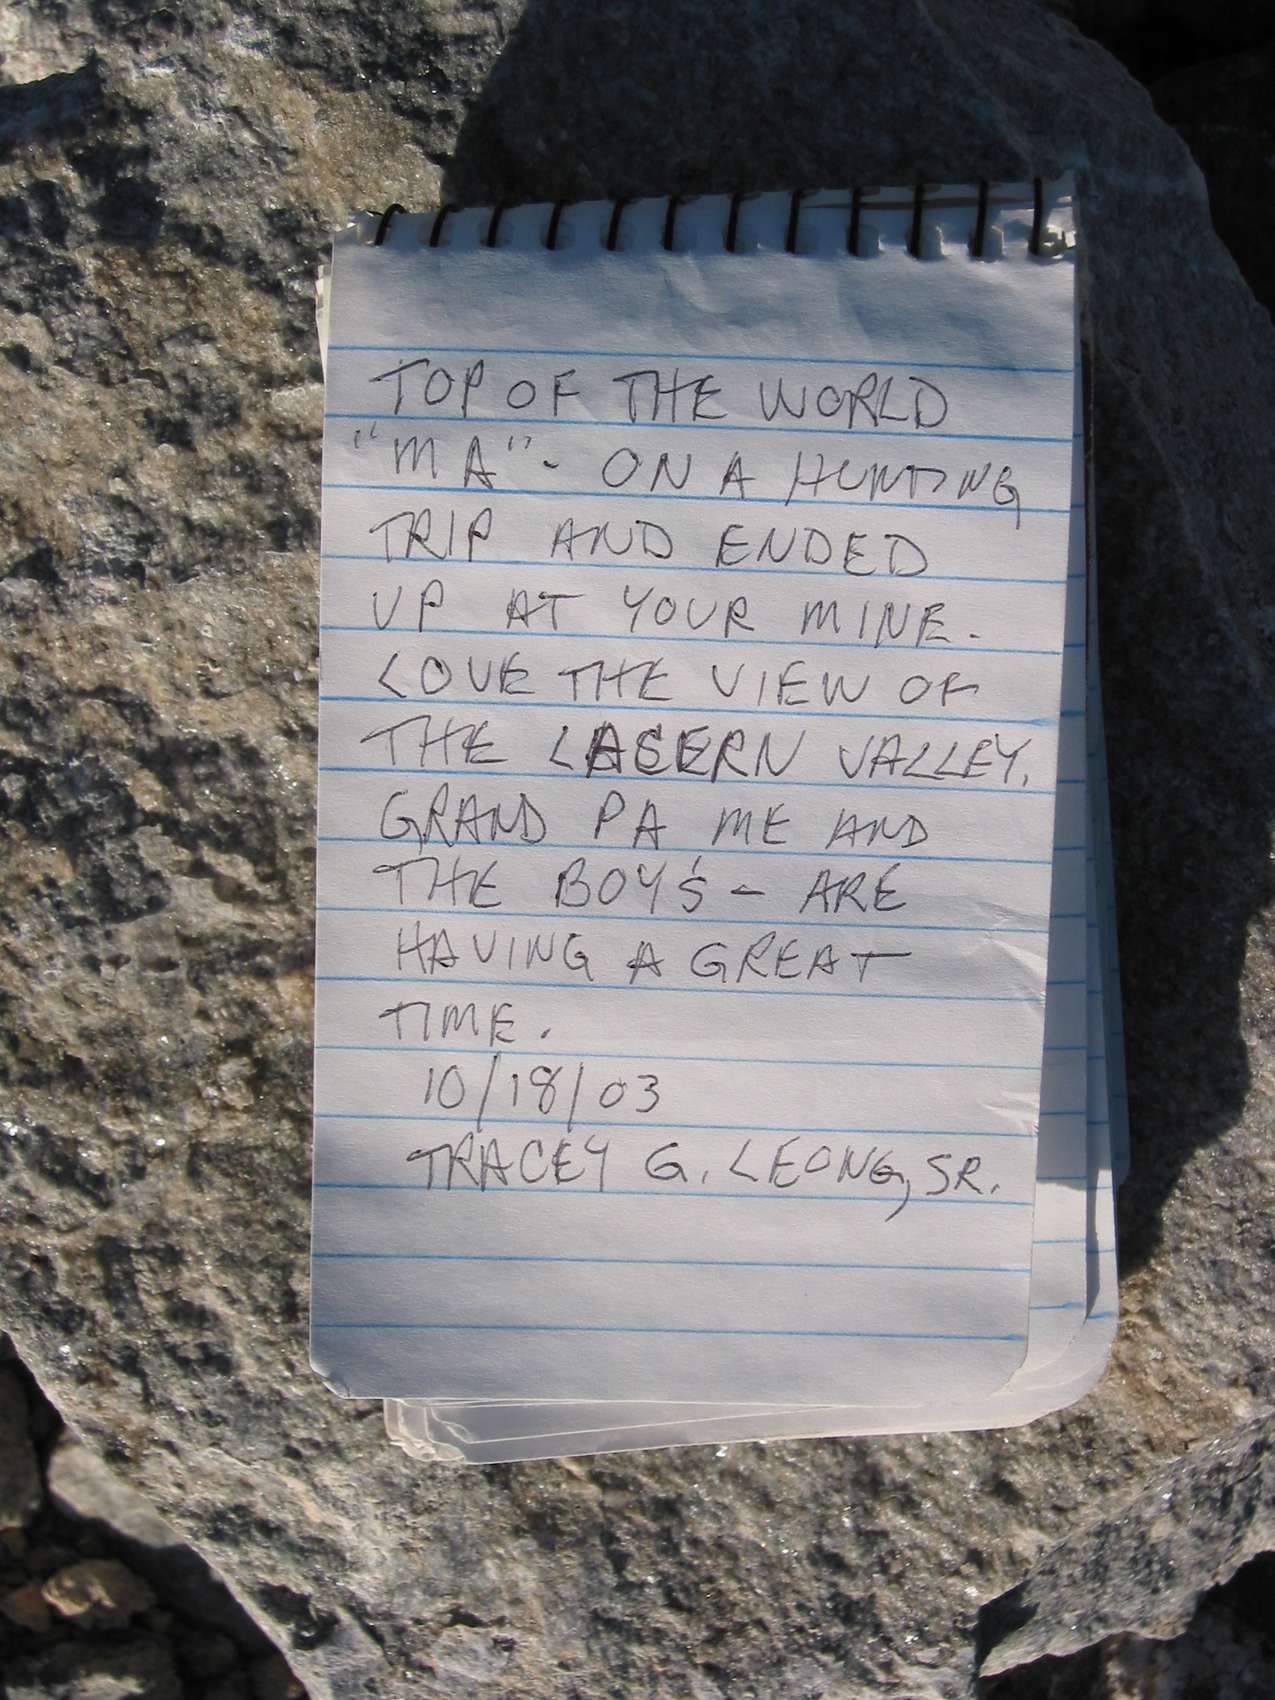 TOP OF THE WORLD
"MA" - ON A HUNTING
TRIP AND ENDED
UP AT YOUR MINE.
LOVE THE VIEW OF
THE VALLEY.
GRAND PA ME AND
THE BOY'S - ARE
HAVING A GREAT
TIME.
10/18/03
TRACEY G. LEONG, SR.